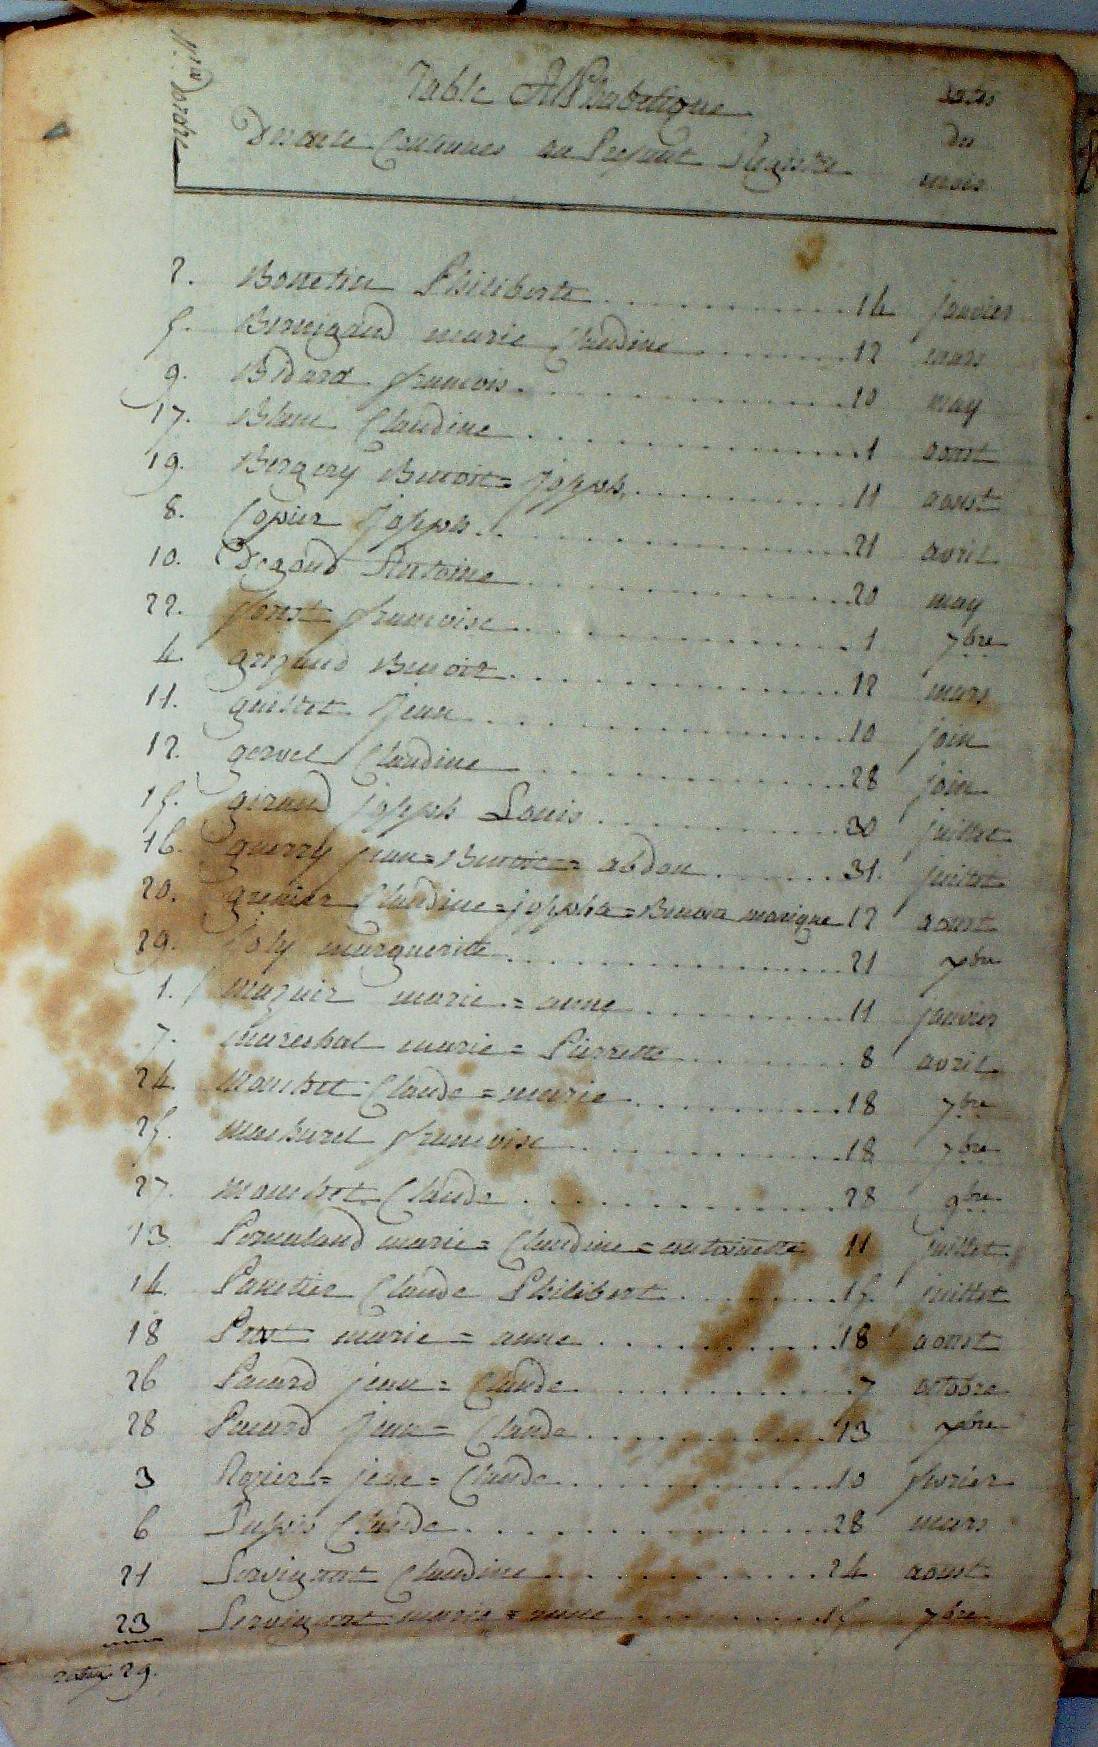 N.ro Dordre
Table Alphabetique
Des acte Contenues au Present Registre
Dates
des
mois
2. Bonnetin Philiberte 14 janvier
5. Bernigaud marie Claudine 12 mars
9. Bidard francois 10 may
17. Blanc Claudine 1 aoust
19. Bergery Benoit = joseph 11 aoust
8. Copier joseph 21 avril
10. Degoud Antoine 20 may
22. forest francoise 1 7bre
4. Benoit 12 mars
11. guillet jean 10 join
12. Claudine 28 join
15. giraud joseph Louis 30 juillet
16. guerry jean = Benoit = abdon 31. juillet
20. grenier Claudine = josepha = Benoite 12 aoust
29. joly marguerite 21 xbre
1. marie = anne 11 janvier
7. marechal marie = Pierrette 8 avril
24. Claude = marie 18 7bre
25. francoise 18 7bre
27. Claude 28 9bre
13. marie = Claudine = antoinette 11 juillet
14. Panetier Claude Philibert 15. juillet
18 Prost marie = anne 18 aoust
26 Pacard jean = Claude 7 octobre
28 Pacard jean = Claude 13 xbre
3 jean = Claude 10 fevrier
6 Claude 28 mars
21 Servignat Claudine 24 aoust
23 Servignat marie = anne 15 7bre
29.